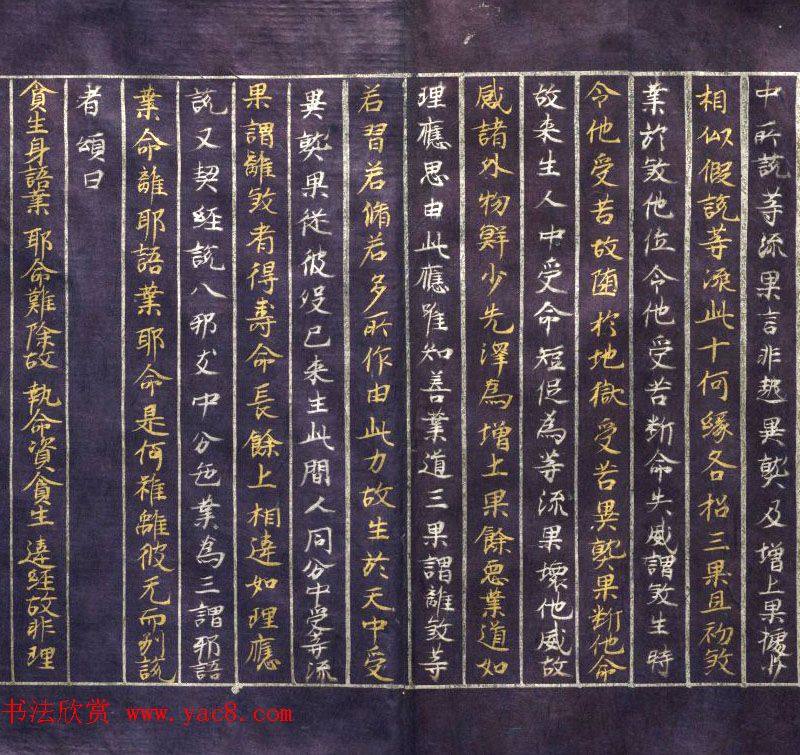 中所說等流果言非越異熟及增上果據少
相似假說等流此十何緣各招三果且初煞
業於煞他位令他受苦斷命失威謂煞生時
令他受苦故墮於地獄受苦異熟果斷他命
故来生人中受命短促為等流果壞他威故
感諸外物鮮少光澤為增上果餘惡業道如
理應思由此應准知善業道三果謂離煞等
若習若脩若多所作由此力故生於天中受
異熟果從彼歿已来生此間人同分中受等流
果謂離煞者得壽命長餘上相違如理應
說又契經說八邪支中分色業為三謂邪語
業命離耶語業耶命是何雖離彼无而別說
者頌曰
貪生身語業 耶命難除故 執命資貪生 違經故非理
书法欣赏 www.yac8.com